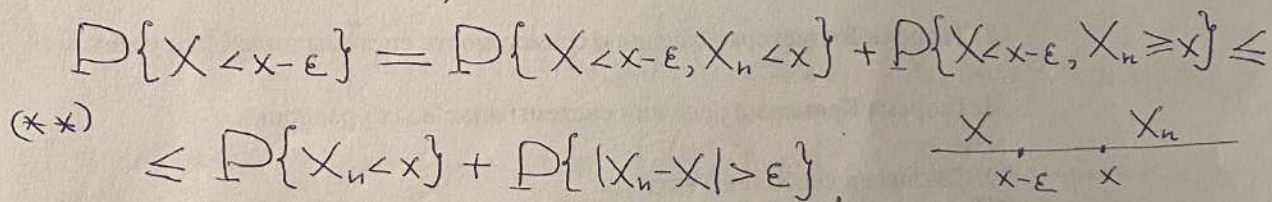 P{X<x-ε} = P{X<x-ε, Xₙ<x} + P{X<x-ε, Xₙ≥x} ≤
(**)
≤ P{Xₙ<x} + P{|Xₙ-X|>ε}.
X Xₙ
x-ε x